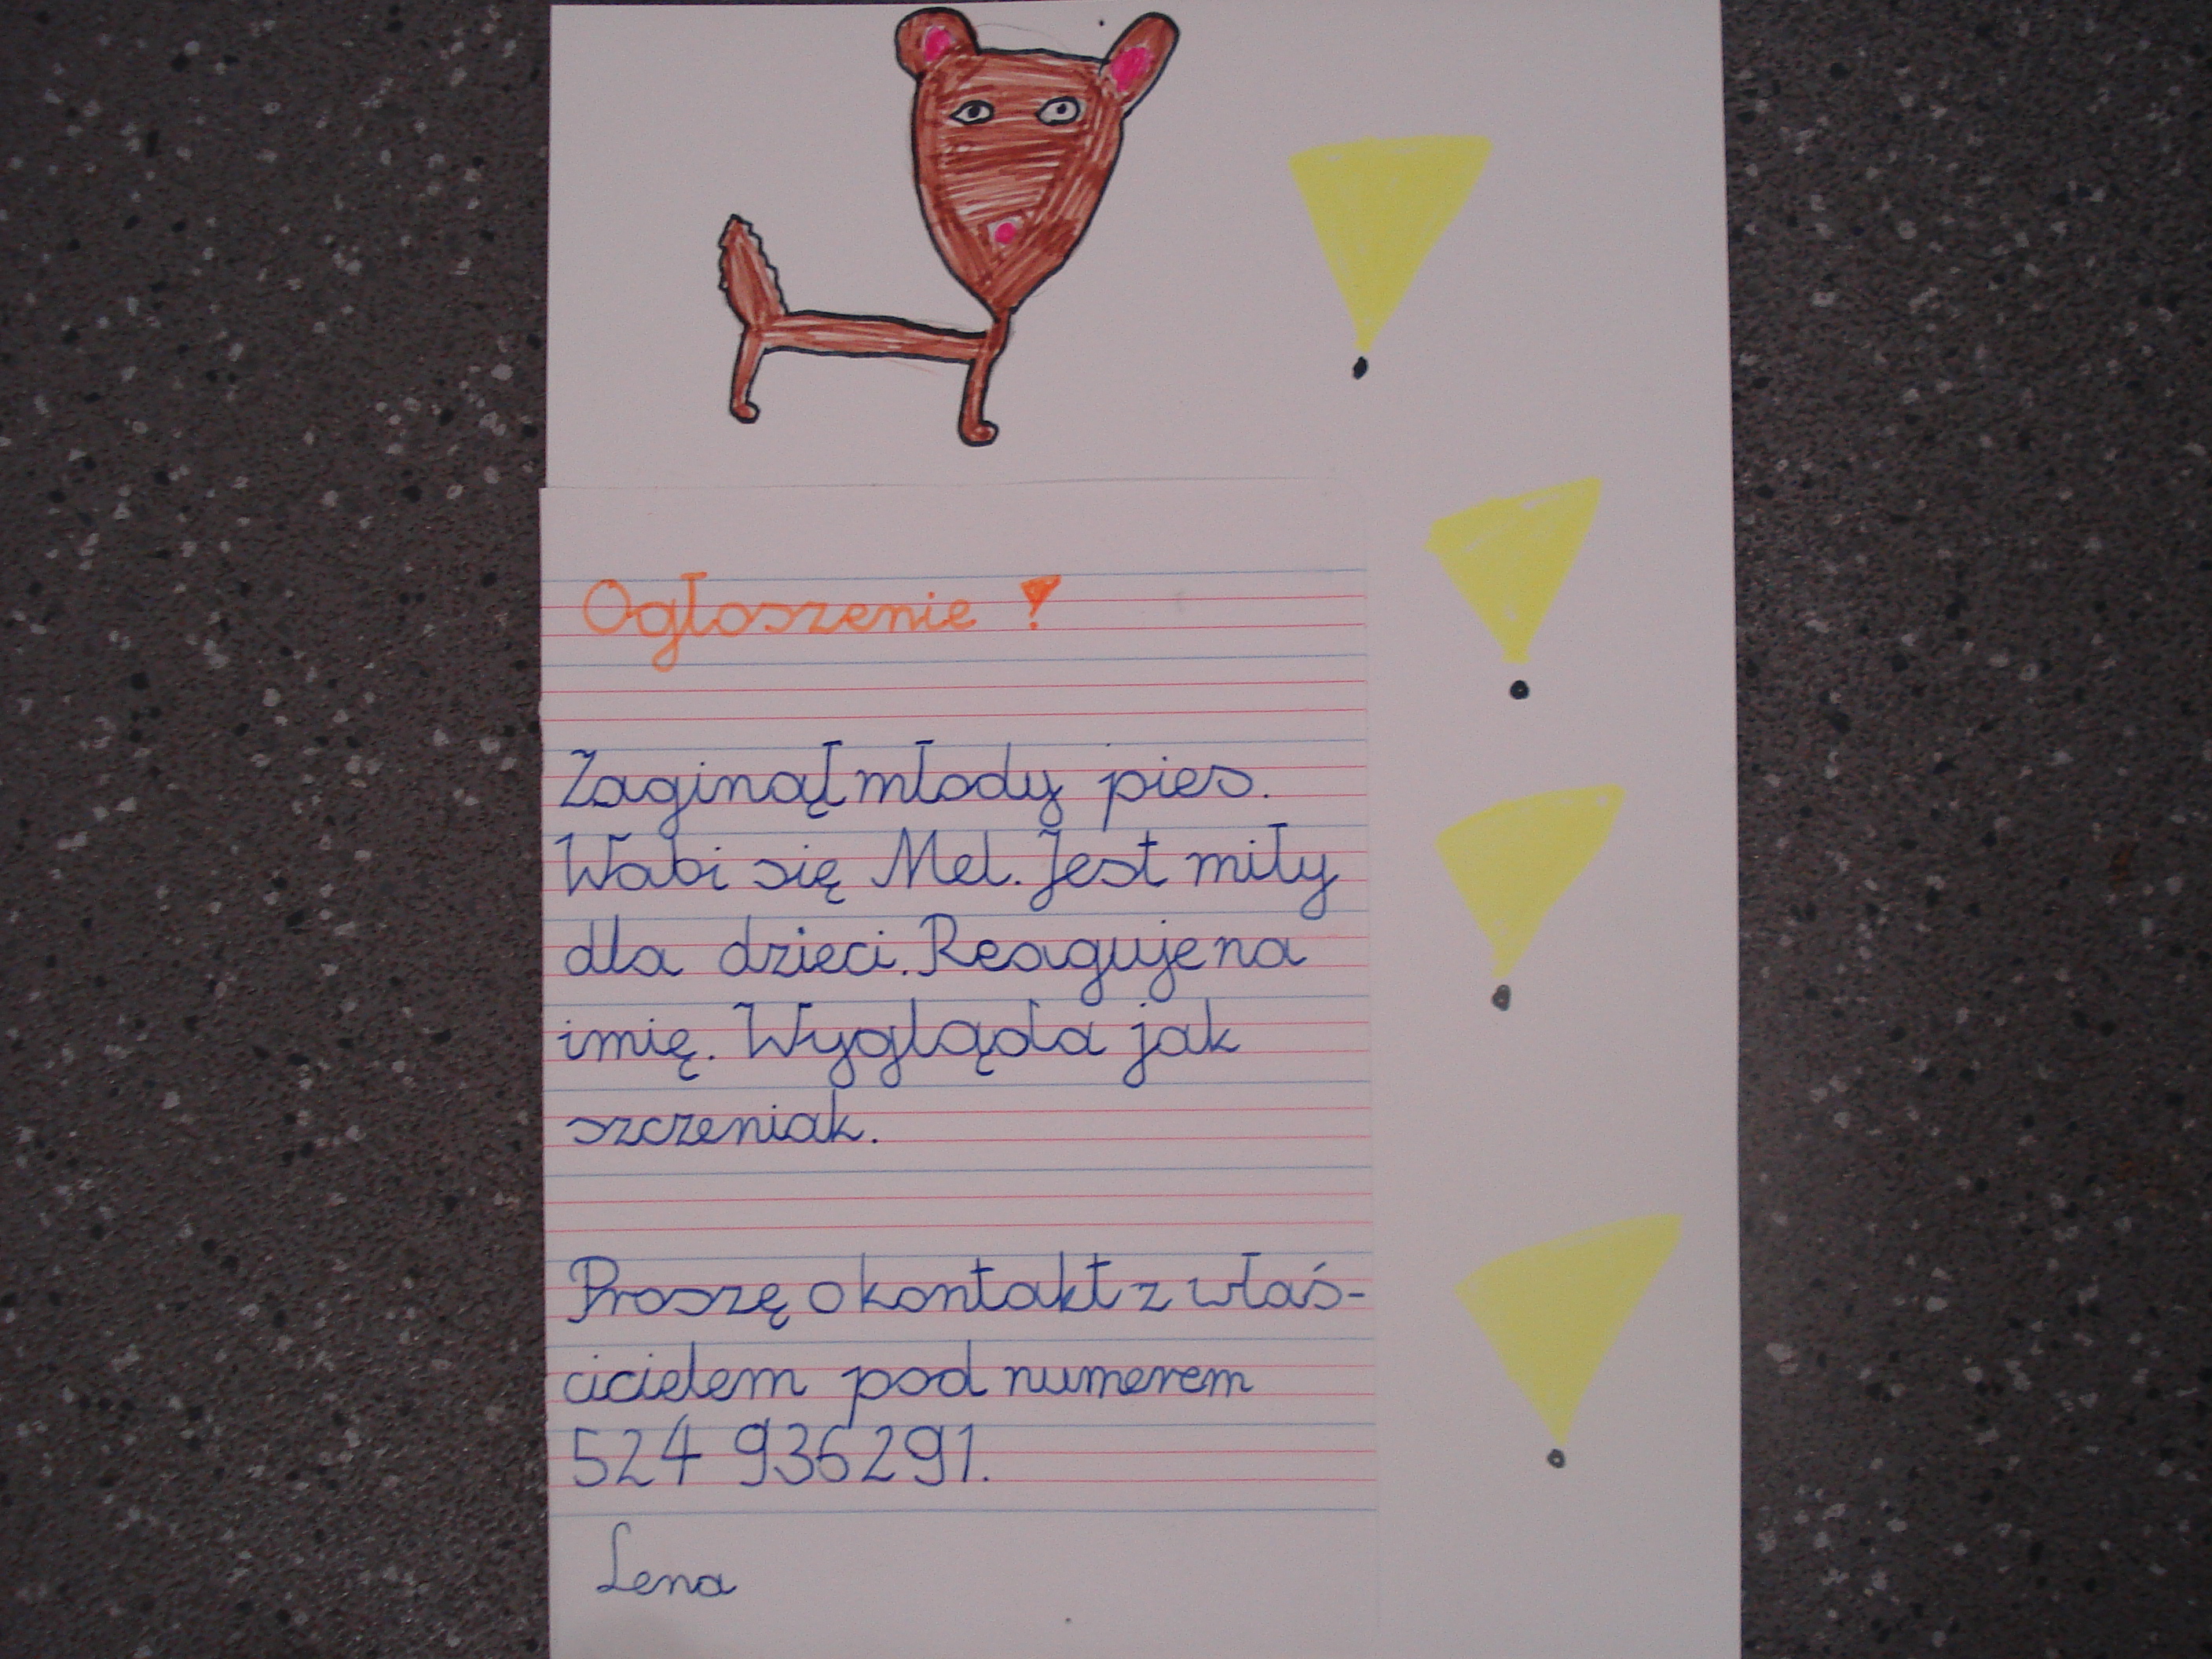 Ogłoszenie !
Zaginął młody pies.
Wabi się Mel. Jest miły
dla dzieci. Reaguje na
imię. Wygląda jak
szczeniak.
Proszę o kontakt z właś-
cicielem pod numerem
524 936291.
Lena